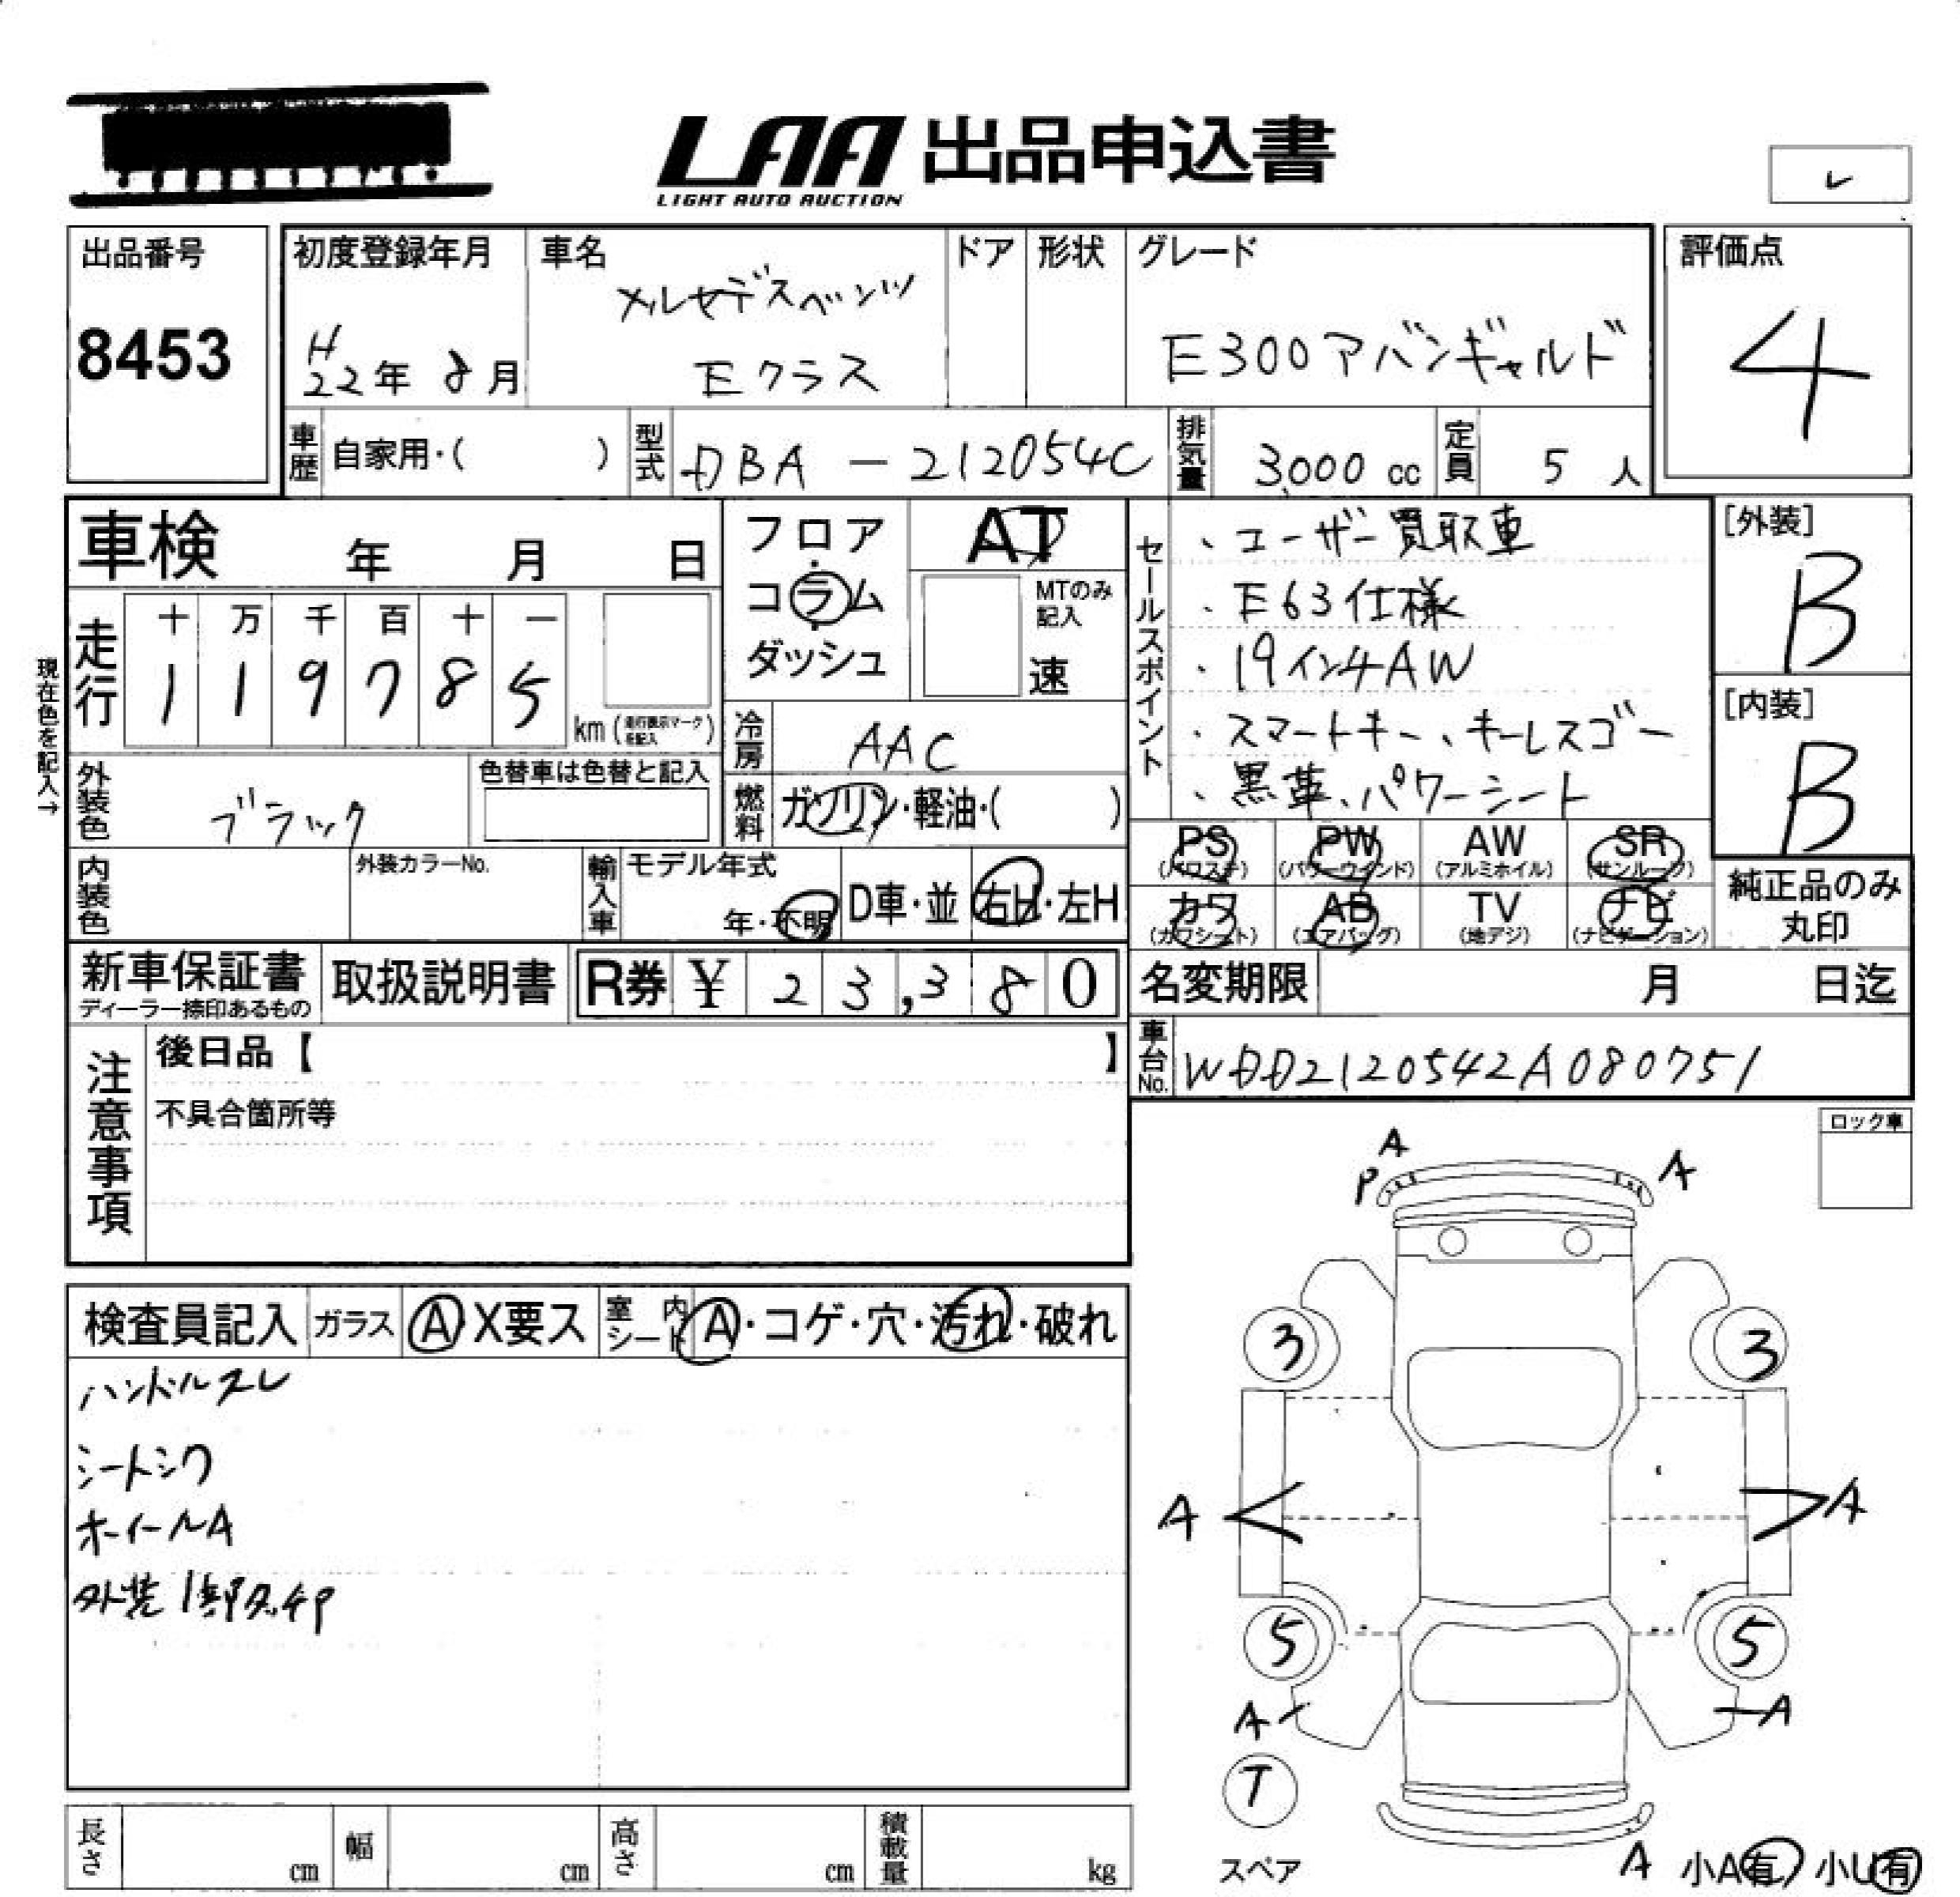 LAA 出品申込書
LIGHT AUTO AUCTION
出品番号
8453
初度登録年月
H
22年 8月
車名
メルセデスベンツ
Eクラス
ドア
形状
グレード
E300アバンギャルド
評価点
4
車歴
自家用・( )
型式
DBA - 212054C
排気量
3,000 cc
定員
5 人
車検 年 月 日
フロア
コラム
ダッシュ
AT
MTのみ
記入
速
セールスポイント
、ユーザー買取車
・E63仕様
・19インチAW
・スマートキー、キーレスゴー
、黒革、パワーシート
[外装]
B
[内装]
B
現在色を記入→
走行
十 万 千 百 十 一
1 1 9 7 8 5
km (走行表示マークを記入)
冷房
AAC
外装色
ブラック
色替車は色替と記入
燃料
ガソリン・軽油・( )
PS
(パワステ)
PW
(パワーウインド)
AW
(アルミホイル)
SR
(サンルーフ)
カワ
(カワシート)
AB
(エアバッグ)
TV
(地デジ)
ナビ
(ナビゲーション)
純正品のみ
丸印
内装色
外装カラーNo.
輸入車
モデル年式
年・不明
D車・並
右H・左H
新車保証書
ディーラー捺印あるもの
取扱説明書
R券 ¥ 23,380
名変期限 月 日迄
車台No.
WDD2120542A080751
注意事項
後日品【 】
不具合箇所等
ロック車
検査員記入
ガラス
A X要ス
室内シート
A・コゲ・穴・汚れ・破れ
ハンドルスレ
シートシワ
ホイールA
外装1部タッチP
A
P
A
3
3
A
A
5
5
A
A
T
スペア
A
小A有 小U有
長さ cm
幅 cm
高さ cm
積載量 kg